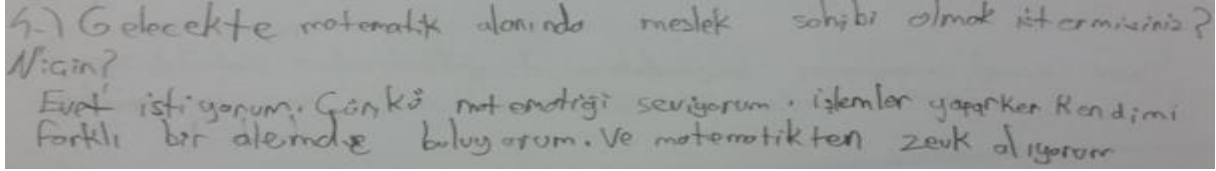 5-) Gelecekte matematik alanında meslek sahibi olmak istermisiniz?
Niçin?
Evet istiyorum. Çünkü matematiği seviyorum. işlemler yaparken Kendimi
farklı bir alemde buluyorum. Ve matematikten zevk alıyorum